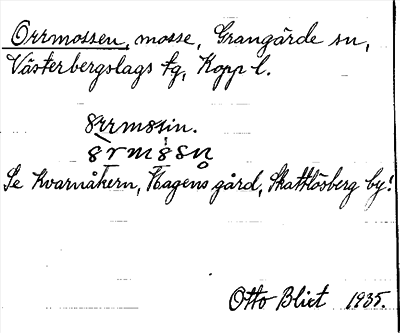 Orrmossen, mosse, Grangärde sn,
Västerbergslags tg, Kopp l.
Se Kvarnåkern, Hagens gård, Skattlösberg by!
Otto Blixt 1935.